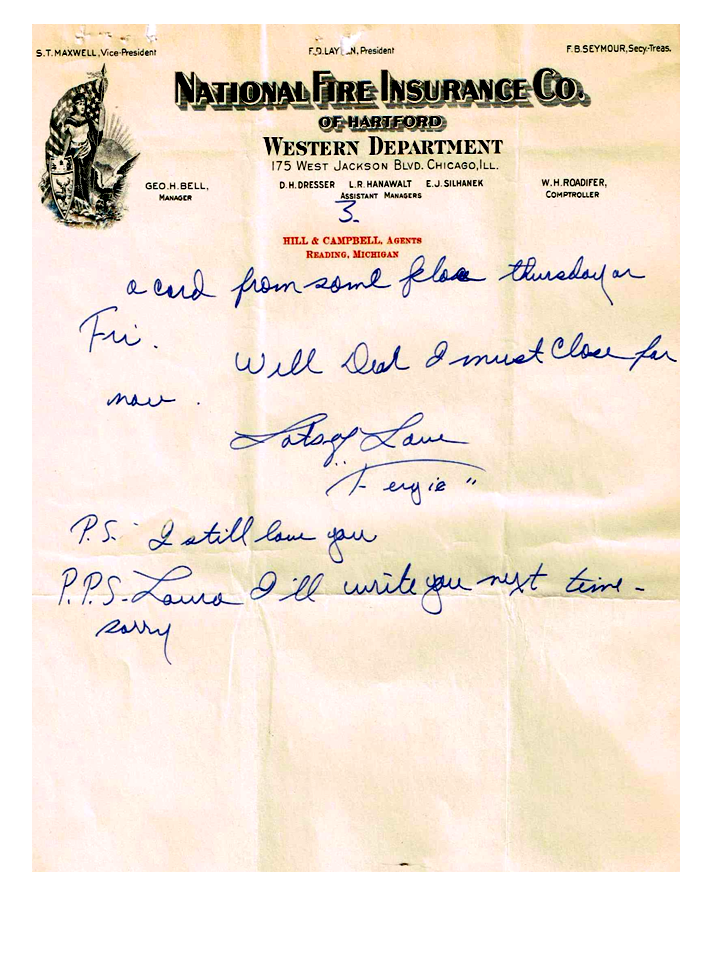 S.T. MAXWELL, Vice-President
F.D. LAYTON, President
F.B. SEYMOUR, Secy.-Treas.
NATIONAL FIRE INSURANCE CO.
OF HARTFORD
WESTERN DEPARTMENT
175 WEST JACKSON BLVD. CHICAGO, ILL.
GEO. H. BELL,
MANAGER
D.H. DRESSER L.R. HANAWALT E.J. SILHANEK
ASSISTANT MANAGERS
W.H. ROADIFER,
COMPTROLLER
3.
HILL & CAMPBELL, AGENTS
READING, MICHIGAN
a card from some place thursday or
Fri.
Will Deal I must Close for
now.
Lots of Love
"Fergie"
P.S. I still love you
P.P.S. Laura I'll write you next time -
sorry